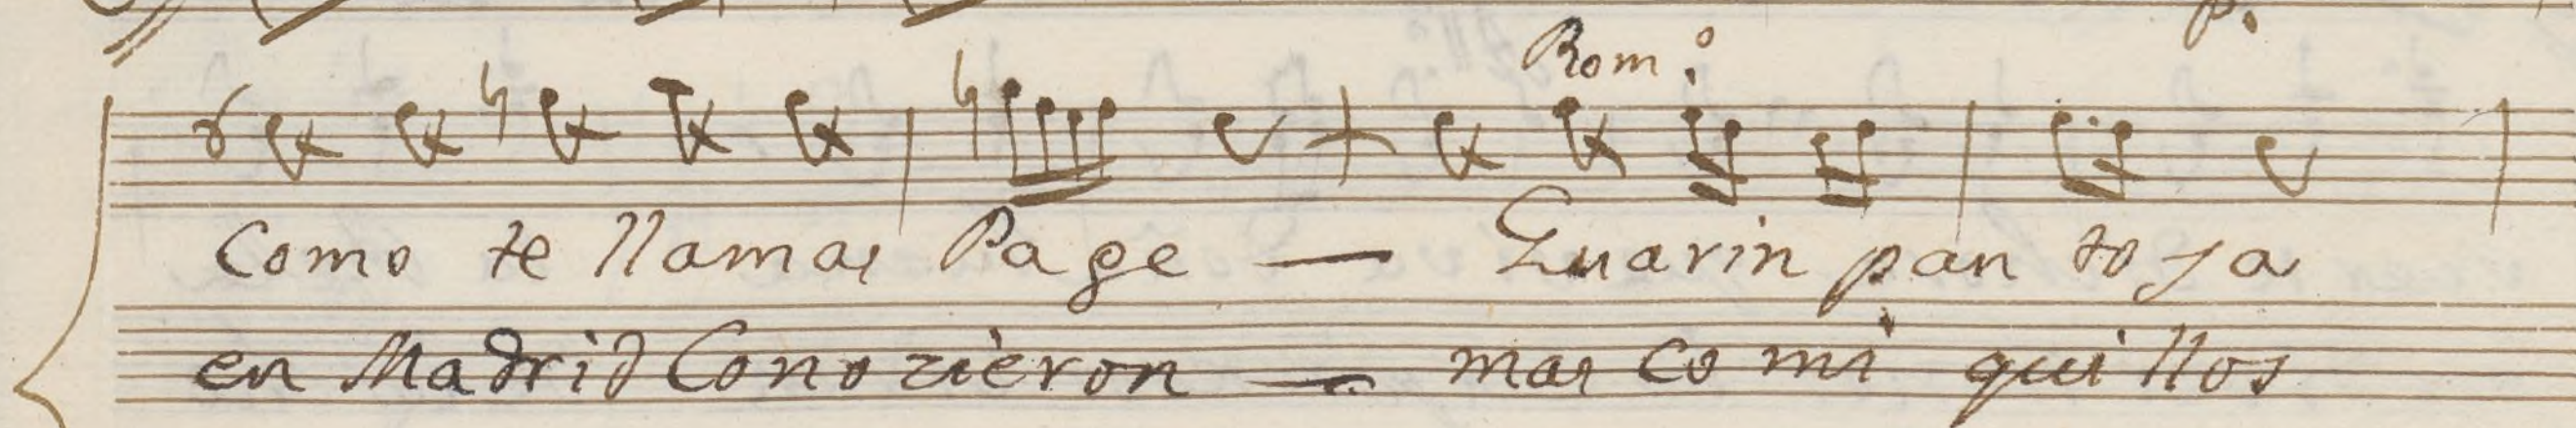 p.
Rom.º
Como te llamas Page — Guarin pan to ya
en Madrid Cono zieron — mas co mi qui llos